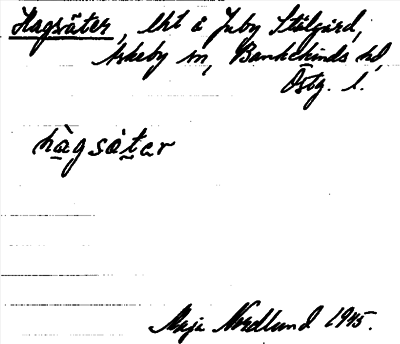 Hagsäter, lht å Juby Stålgård,
Askeby sn, Bankekinds hd,
Östg. l.
hàgsátər
Maja Nordlund 1945.